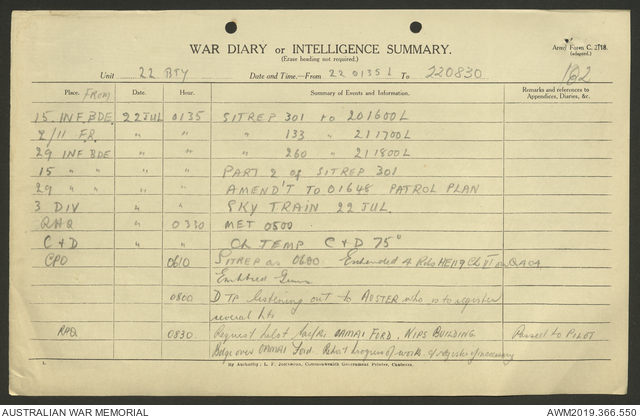 WAR DIARY or INTELLIGENCE SUMMARY.
(Erase heading not required.)
Army Form C. 2118.
(adapted.)
Unit 22 BTY Date and Time.—From 22 0135 L To 220830 162
Place. From Date. Hour. Summary of Events and Information. Remarks and references to Appendices, Diaries, &c.
15 INF. BDE. 22 JUL 0135 SITREP 301 to 201600L
2/11 F.R. " " 133 " 211700L
29 INF BDE " " 260 " 211800L
15 " " " PART 2 of SITREP 301
29 " " " AMEND'T TO 01648 PATROL PLAN
3 DIV " SKY TRAIN 22 JUL.
RHQ " 0330 MET 0500
C & D " " CH TEMP C & D 75°
CPO 0610 SITREP as 0600 Expended 4 Rds HE119 Ch on QA04
Guns
0800 D TP listening out to AUSTER who is to register
several tgts
RHQ 0830 Request pilot ORMAI FORD, NIPS BUILDING Passed to PILOT
Bdge over ORMAI Ford. Report progress of work, & register if necessary
1. By Authority: L. F. Johnston, Commonwealth Government Printer, Canberra.
AUSTRALIAN WAR MEMORIAL
AWM2019.366.550